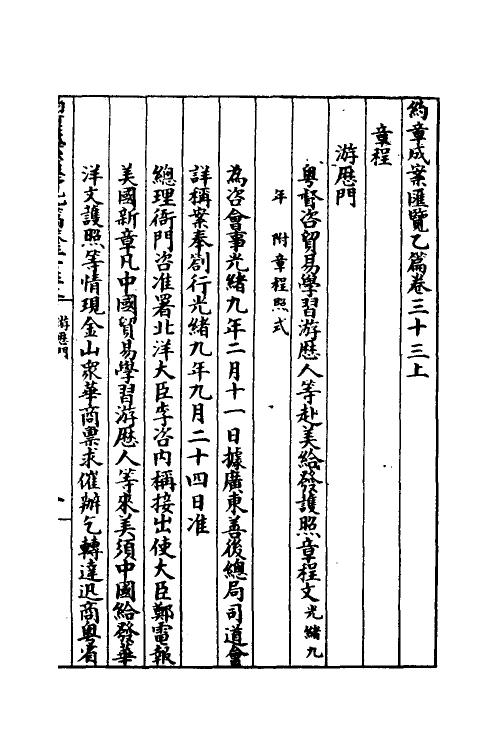 約章成案匯覽乙篇卷三十三上
章程
游歷門
粵督咨貿易學習游歷人等赴美給發護照章程文光緒九
年附章程照式
為咨會事光緒九年二月十一日據廣東善後總局司道會
詳稱案奉劄行光緒九年九月二十四日准
總理衙門咨准署北洋大臣李咨內稱接出使大臣鄭電報
美國新章凡中國貿易學習游歷人等來美須中國給發華
洋文護照等情現金山眾華商票求催辦乞轉達迅商粵省
游歷門